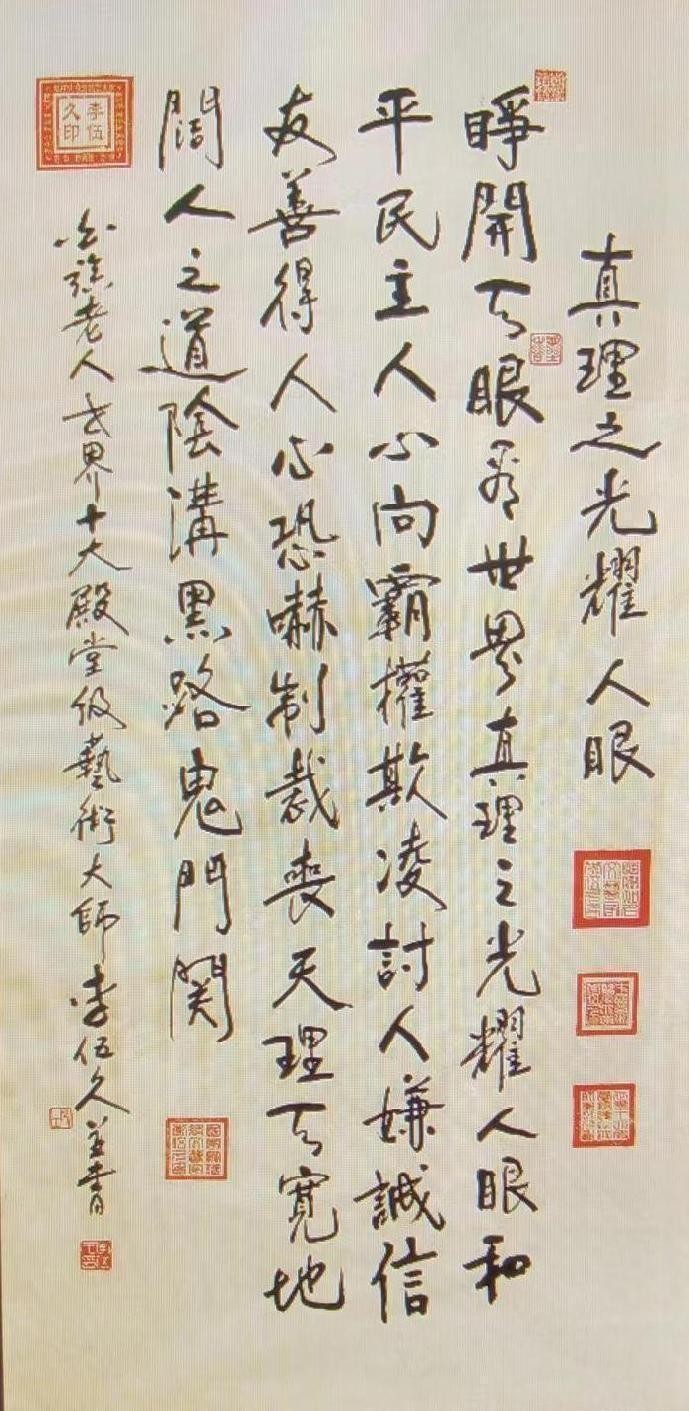 真理之光耀人眼
睜開天眼看世界真理之光耀人眼和
平民主人心向霸權欺凌討人嫌誠信
友善得人心恐嚇制裁喪天理天寬地
闊人之道陰溝黑路鬼門関
老人世界十大殿堂級藝術大師李伍久並書
李伍
久印